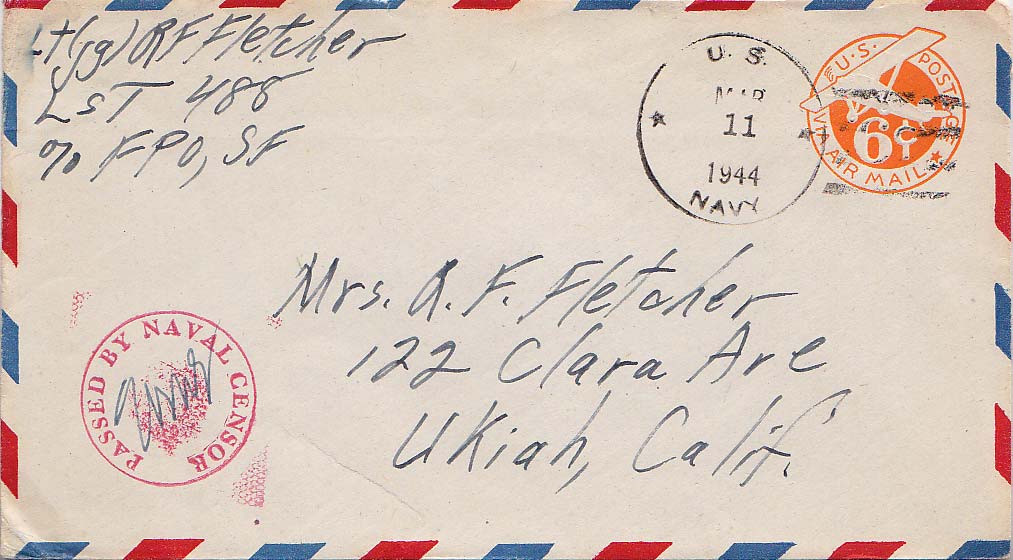 Lt(jg) RF Fletcher
LST 488
c/o FPO, SF
U.S.
MAR
11
1944
NAVY
U.S. POSTAGE
6¢
VIA AIR MAIL
Mrs. R. F. Fletcher
122 Clara Ave
Ukiah, Calif.
PASSED BY NAVAL CENSOR